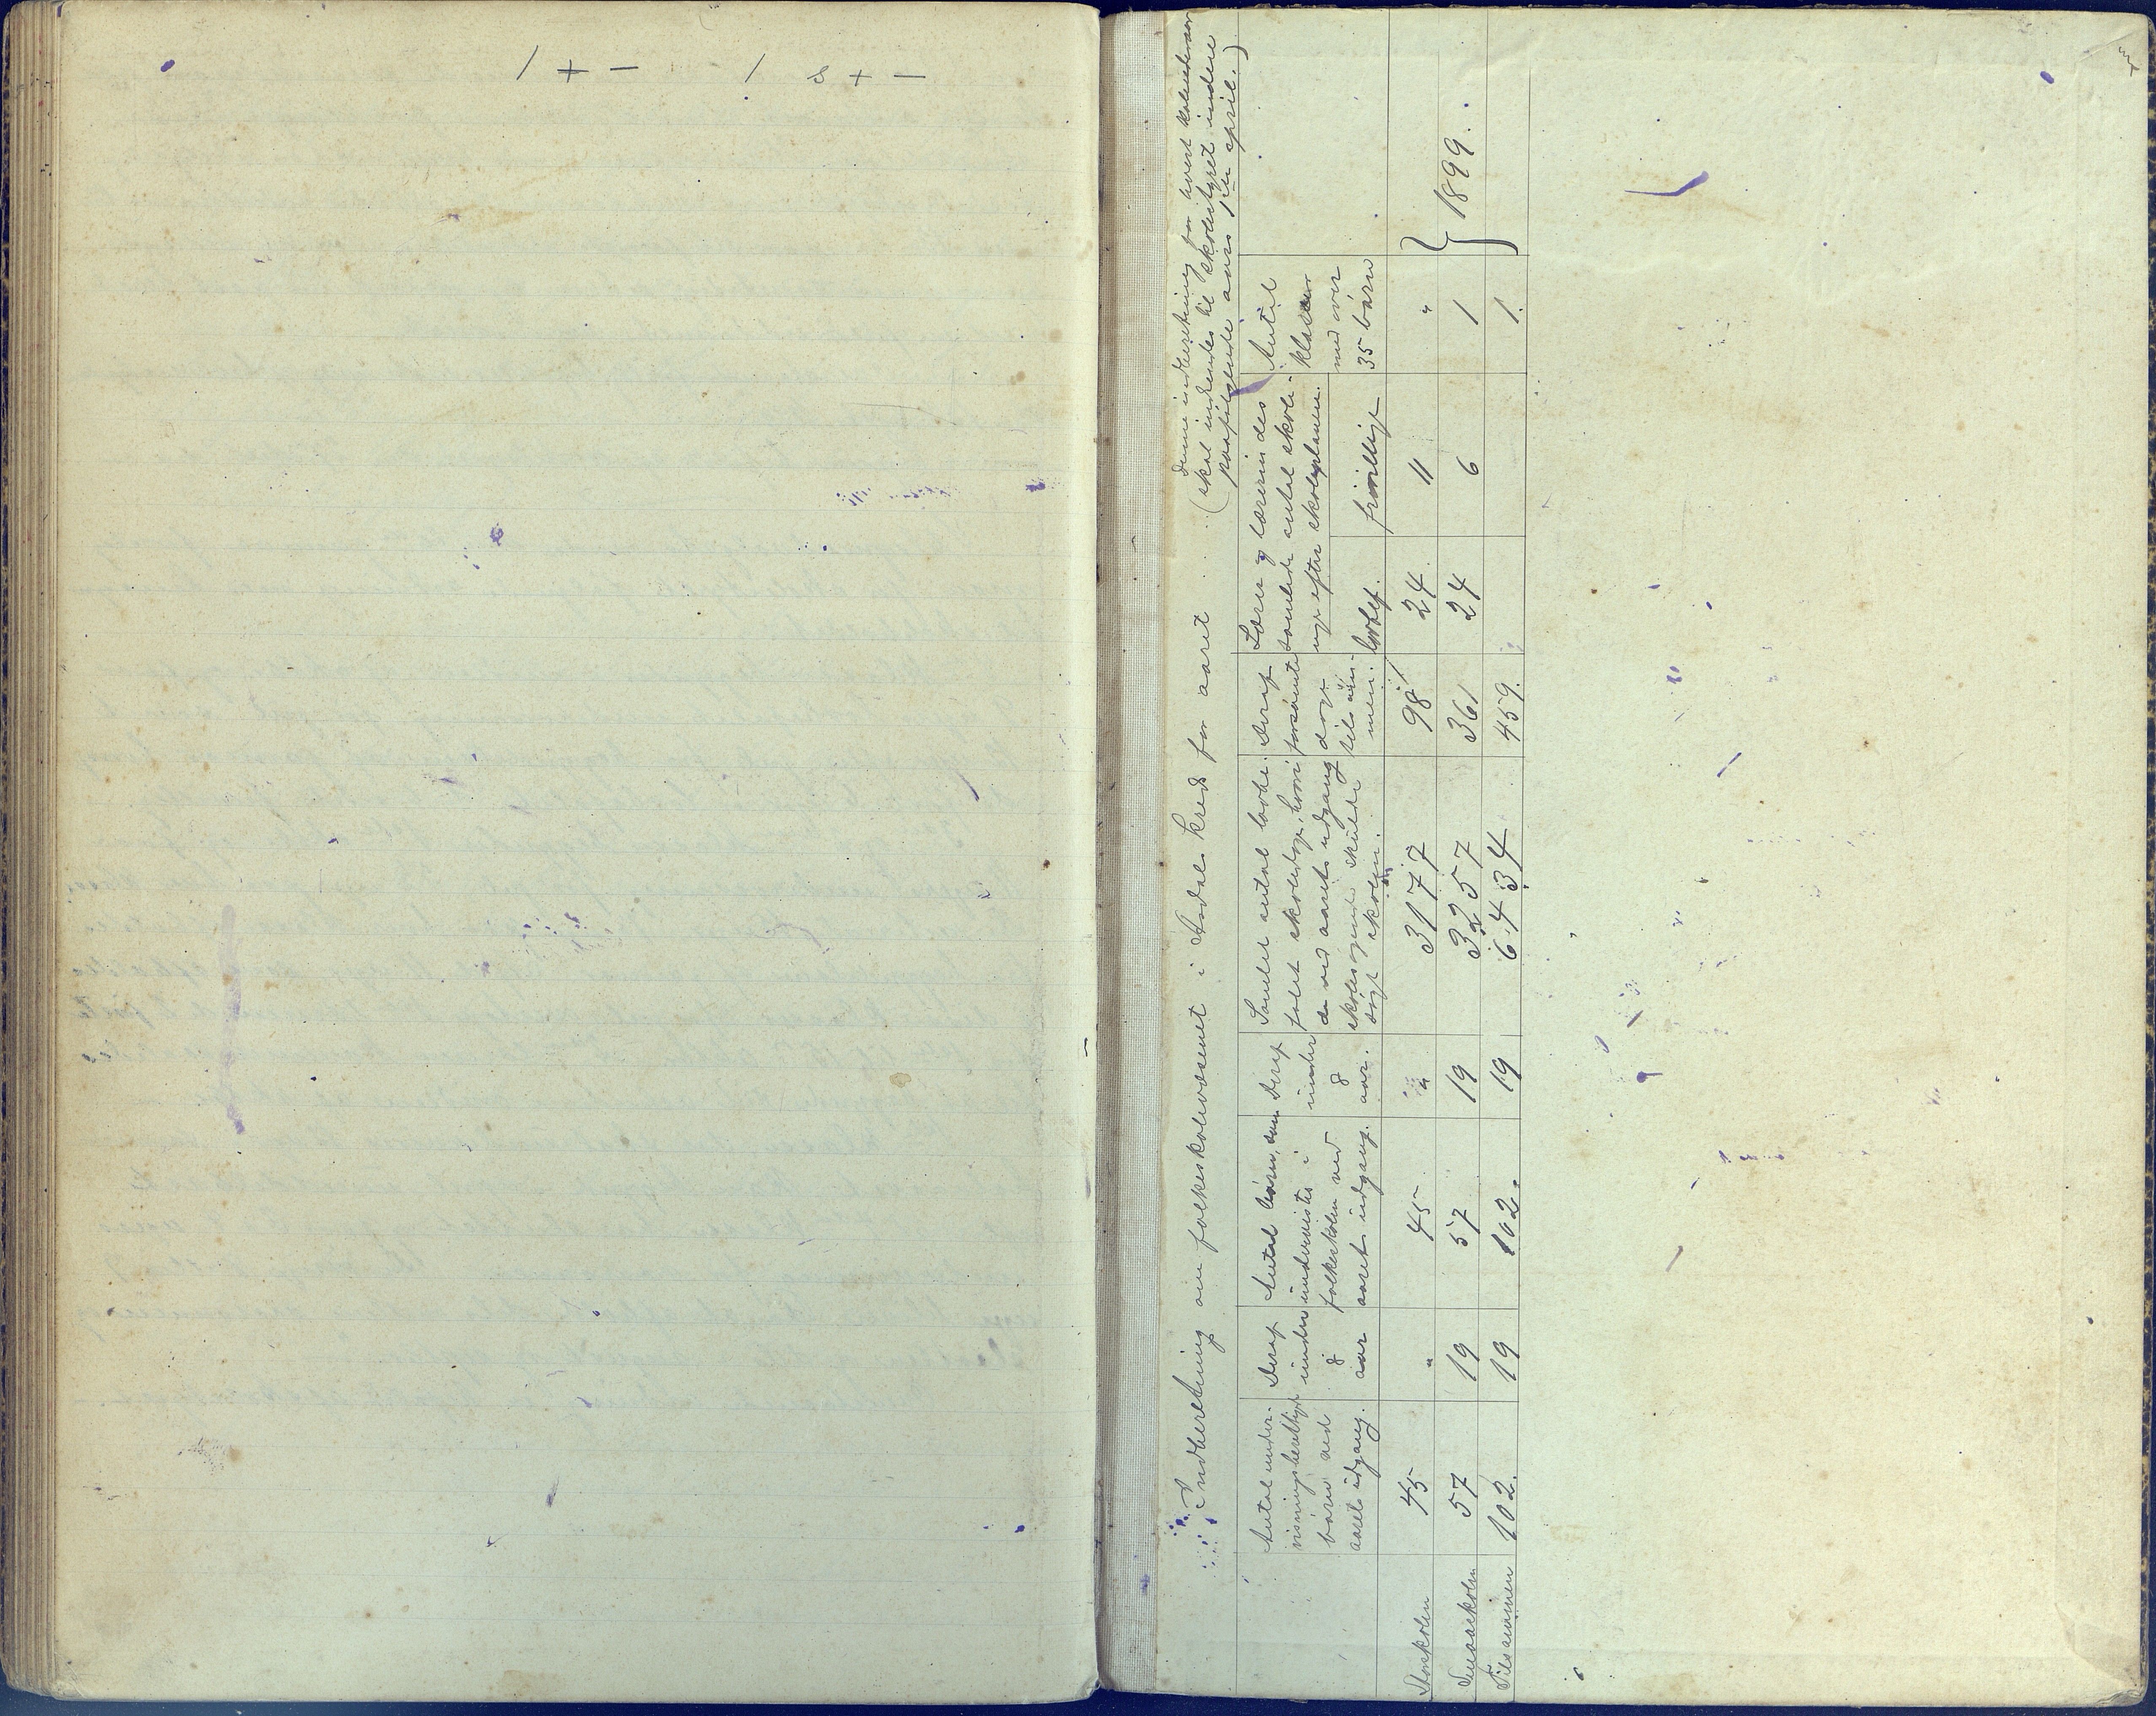 / + – / s + –
Indberetning om folkeskolevæsenet i Aasdal kreds for aaret
(Denne indberetning for hvert kalenderaar
skal indsendes til skolestyret inden
paafølgende aars 1ste april.)
Antal under-
visningsberettigede
børn ved
aarets udgang.
Deraf
under
8
aar
Antal børn, som
undervistes i
folkeskolen ved
aarets udgang.
Deraf
under
8
aar.
Samlet antal lovbe-
falet skoledage, hvori
de ved aarets udgang
skolesøgende skulde
søgt skolen.
Deraf
forsømte
dage
tilsam-
men.
Lærer og lærerindes
samlede antal skole-
uger efter skoleplanen.
lovbef.
frivillige
Antal
klasser
med over
35 børn
Storskolen 45 " 45 " 3177 98 24 11 "
Smaaskolen 57 19 57 19 3257 361 24 6 1
Tilsammen 102. 19 102. 19 6434 459. 1.
} 1899.